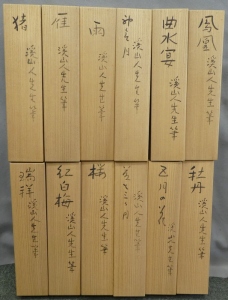 鳳凰
渓山人先生筆
曲水宴
渓山人先生筆
渓山人先生筆
雨
渓山人先生筆
雁
渓山人先生筆
猪
渓山人先生筆
牡丹
渓山人先生筆
渓山人先生筆
渓山人先生筆
桜
渓山人先生筆
紅白梅
渓山人先生筆
瑞祥
渓山人先生筆